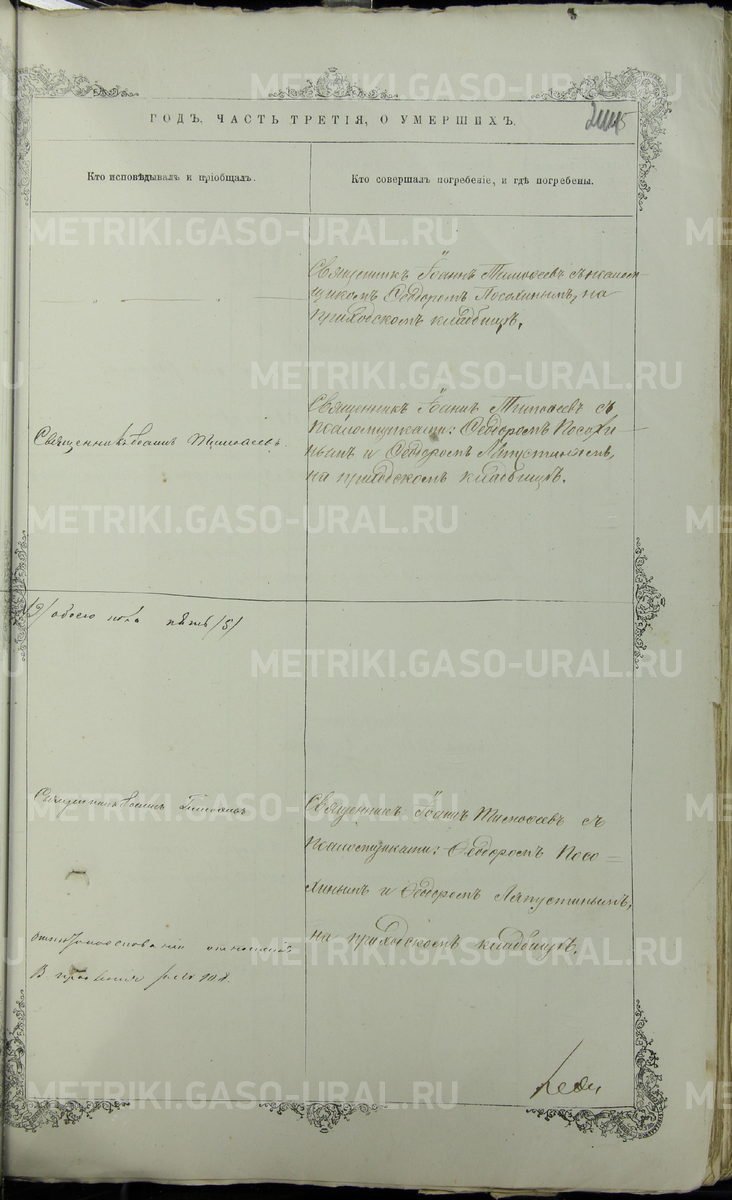 ГОДЪ, ЧАСТЬ ТРЕТІЯ, О УМЕРШИХЪ.
Кто исповѣдывалъ и пріобщалъ.
Кто совершалъ погребеніе, и гдѣ погребены.
Священникъ Іоаннъ Тимоѳеевъ съ псаломщикомъ Ѳеодоромъ Посохинымъ, на
приходскомъ кладбищѣ.
Священникъ Іоаннъ Тимоѳеевъ.
Священникъ Іоаннъ Тимоѳеевъ съ
псаломщиками: Ѳеодоромъ Посохи
нымъ и Ѳеодоромъ Ляпустинымъ,
на приходскомъ кладбищѣ.
обоего пола пять /5/
Священникъ Іоаннъ Тимоѳеевъ
Священникъ Іоаннъ Тимоѳеевъ съ
псаломщиками: Ѳеодоромъ Посо=
хинымъ и Ѳеодоромъ Ляпустинымъ,
на приходскомъ кладбищѣ.
METRIKI.GASO-URAL.RU